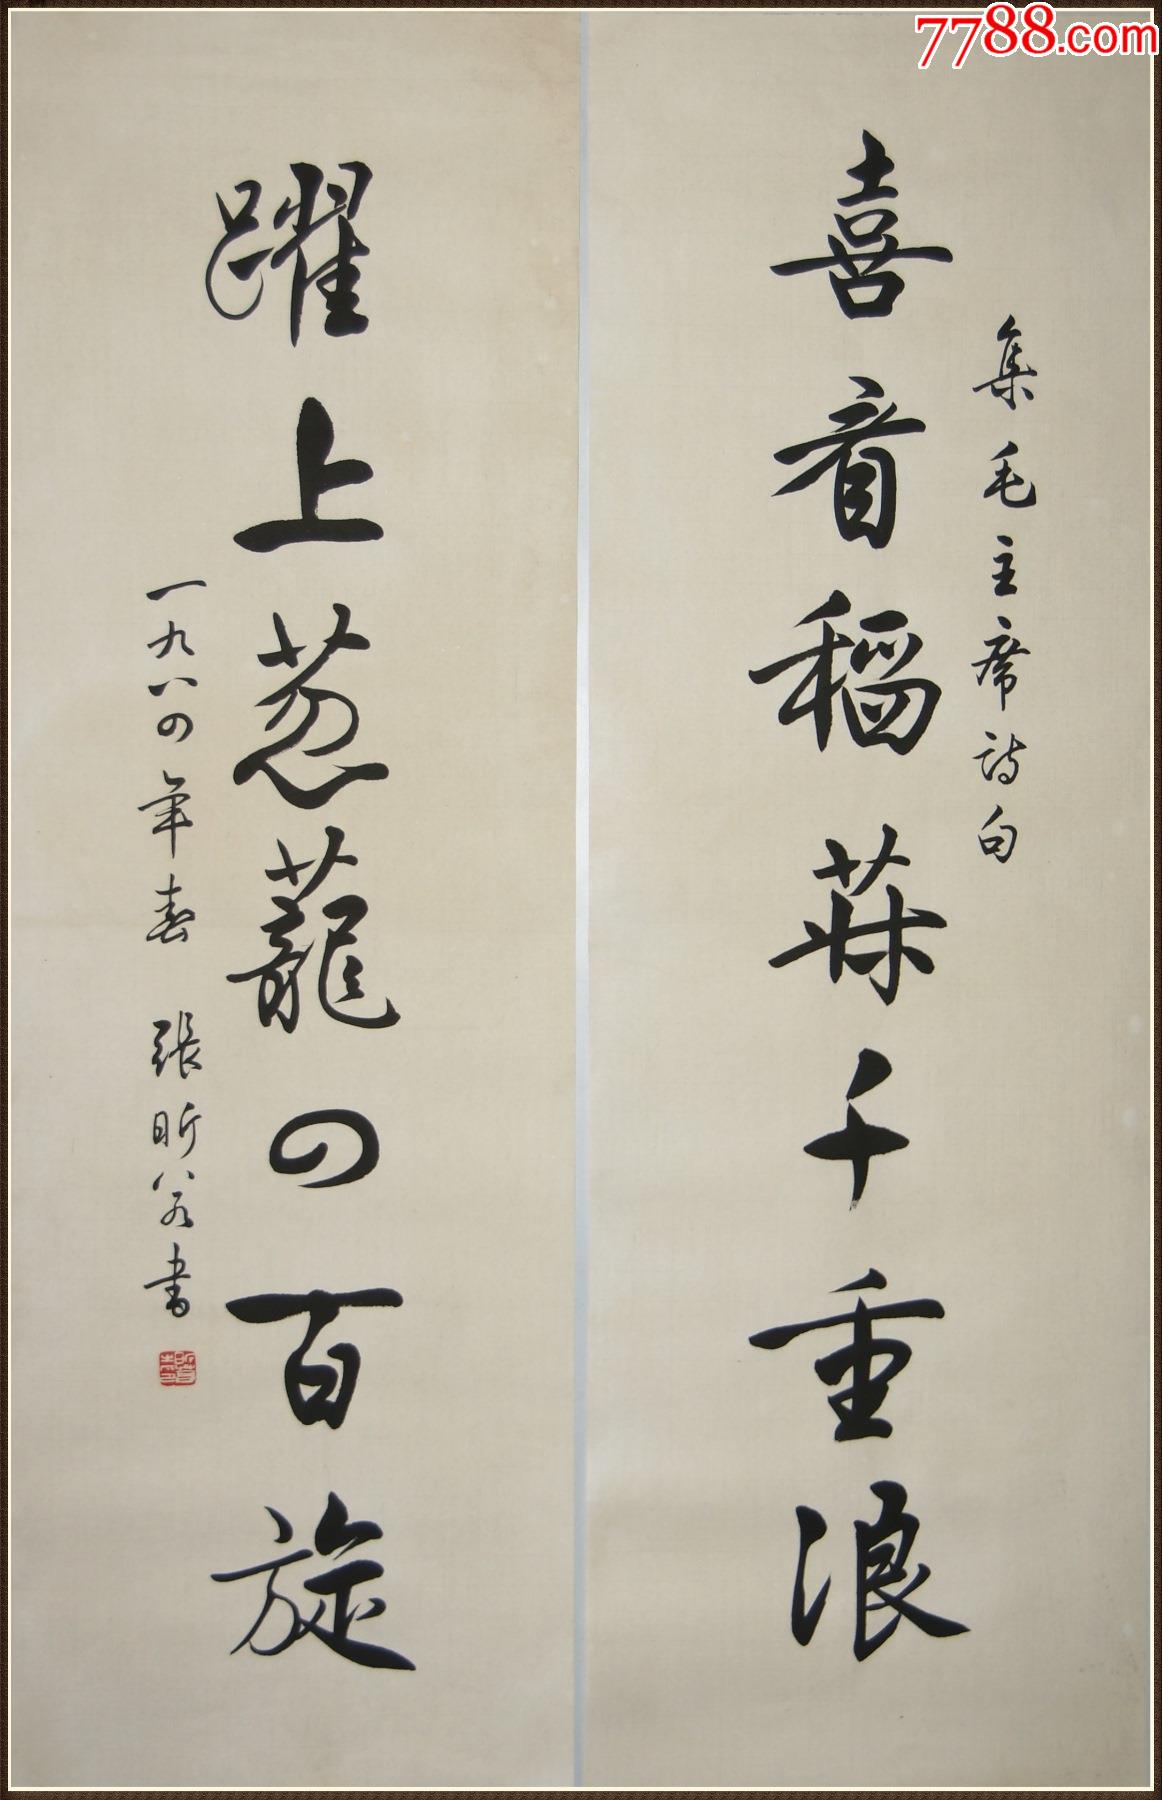 7788.com
集毛主席诗句
喜看稻菽千重浪
躍上葱蘢四百旋
一九八四年春 張昕若書